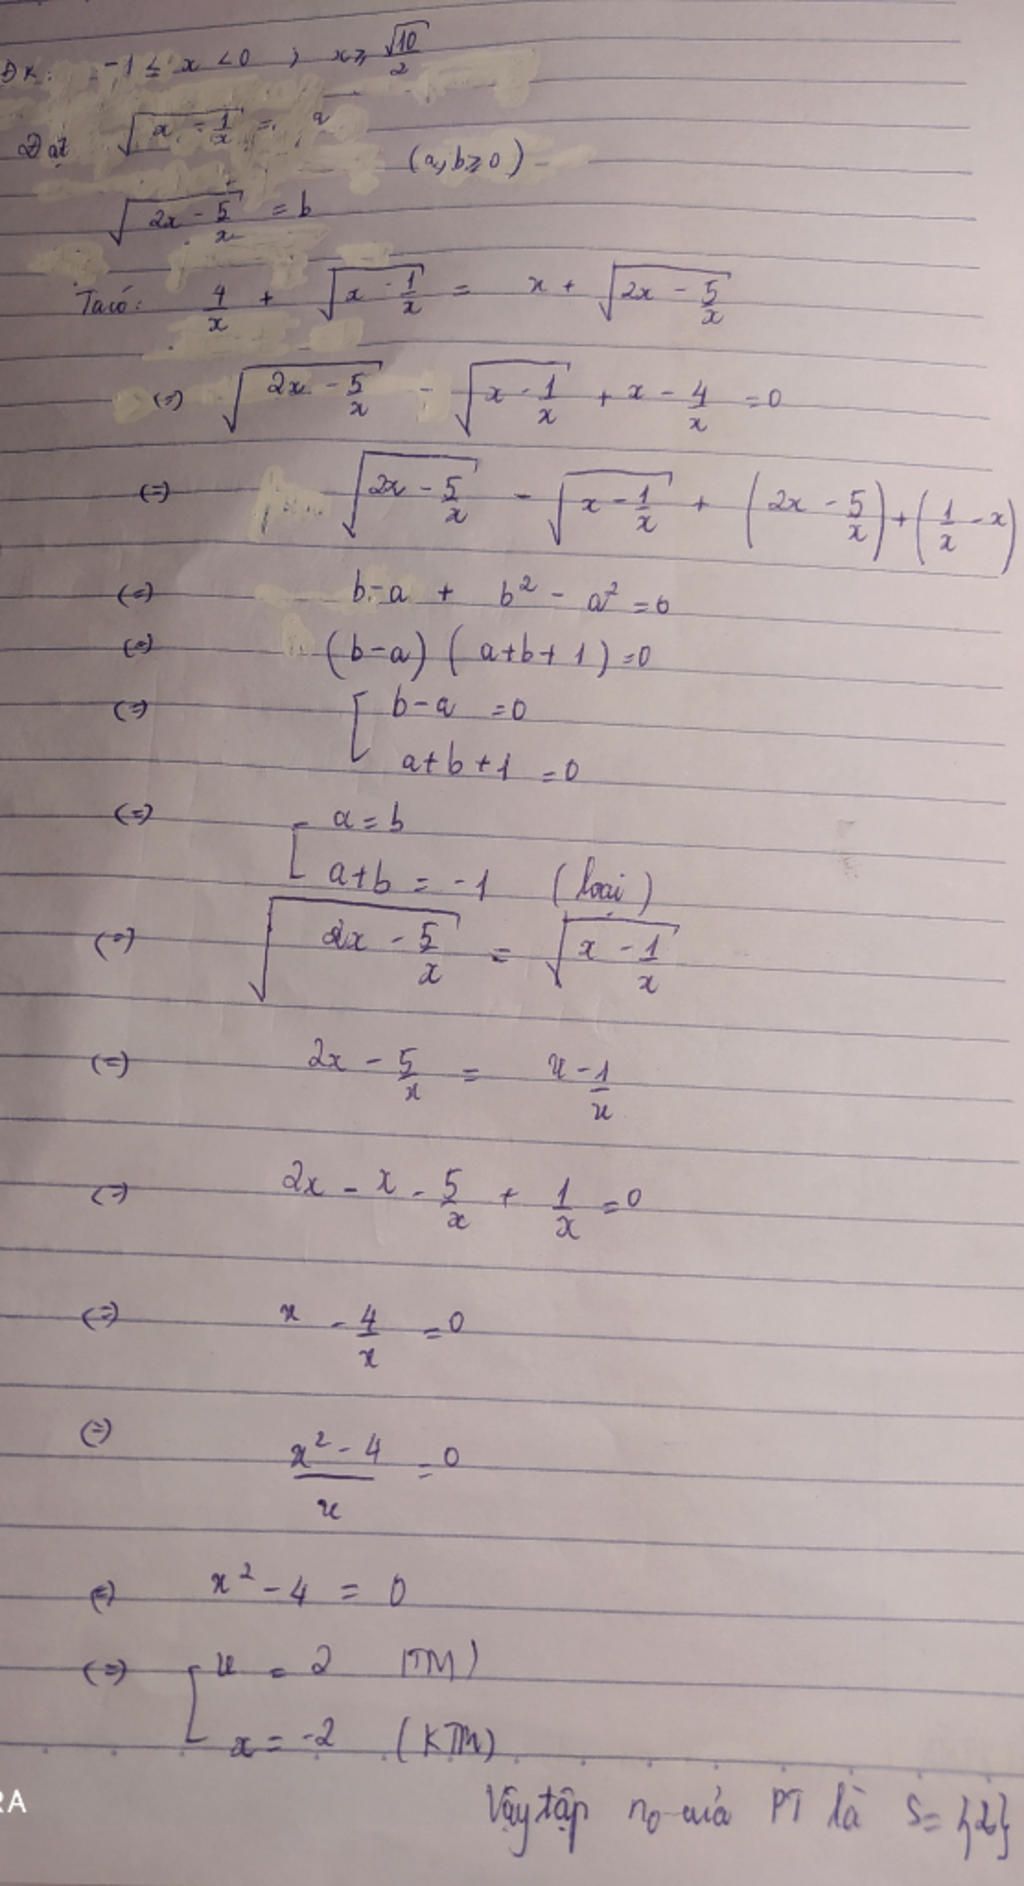 ĐK: -1 ≤ x < 0 ; x ≥ √10/2
Đặt √(x - 1/x) = a
(a, b ≥ 0)
√(2x - 5/x) = b
Ta có: 4/x + √(x - 1/x) = x + √(2x - 5/x)
(=) √(2x - 5/x) - √(x - 1/x) + x - 4/x = 0
(=) √(2x - 5/x) - √(x - 1/x) + (2x - 5/x) + (1/x - x)
(=) b - a + b² - a² = 0
(=) (b - a) (a + b + 1) = 0
(=) [ b - a = 0
a + b + 1 = 0
(=) [ a = b
a + b = -1 (loại)
(=) √(2x - 5/x) = √(x - 1/x)
(=) 2x - 5/x = x - 1/x
(=) 2x - x - 5/x + 1/x = 0
(=) x - 4/x = 0
(=) (x² - 4)/x = 0
(=) x² - 4 = 0
(=) [ x = 2 (TM)
x = -2 (KTM)
RA
Vậy tập n₀ của PT là S = {2}